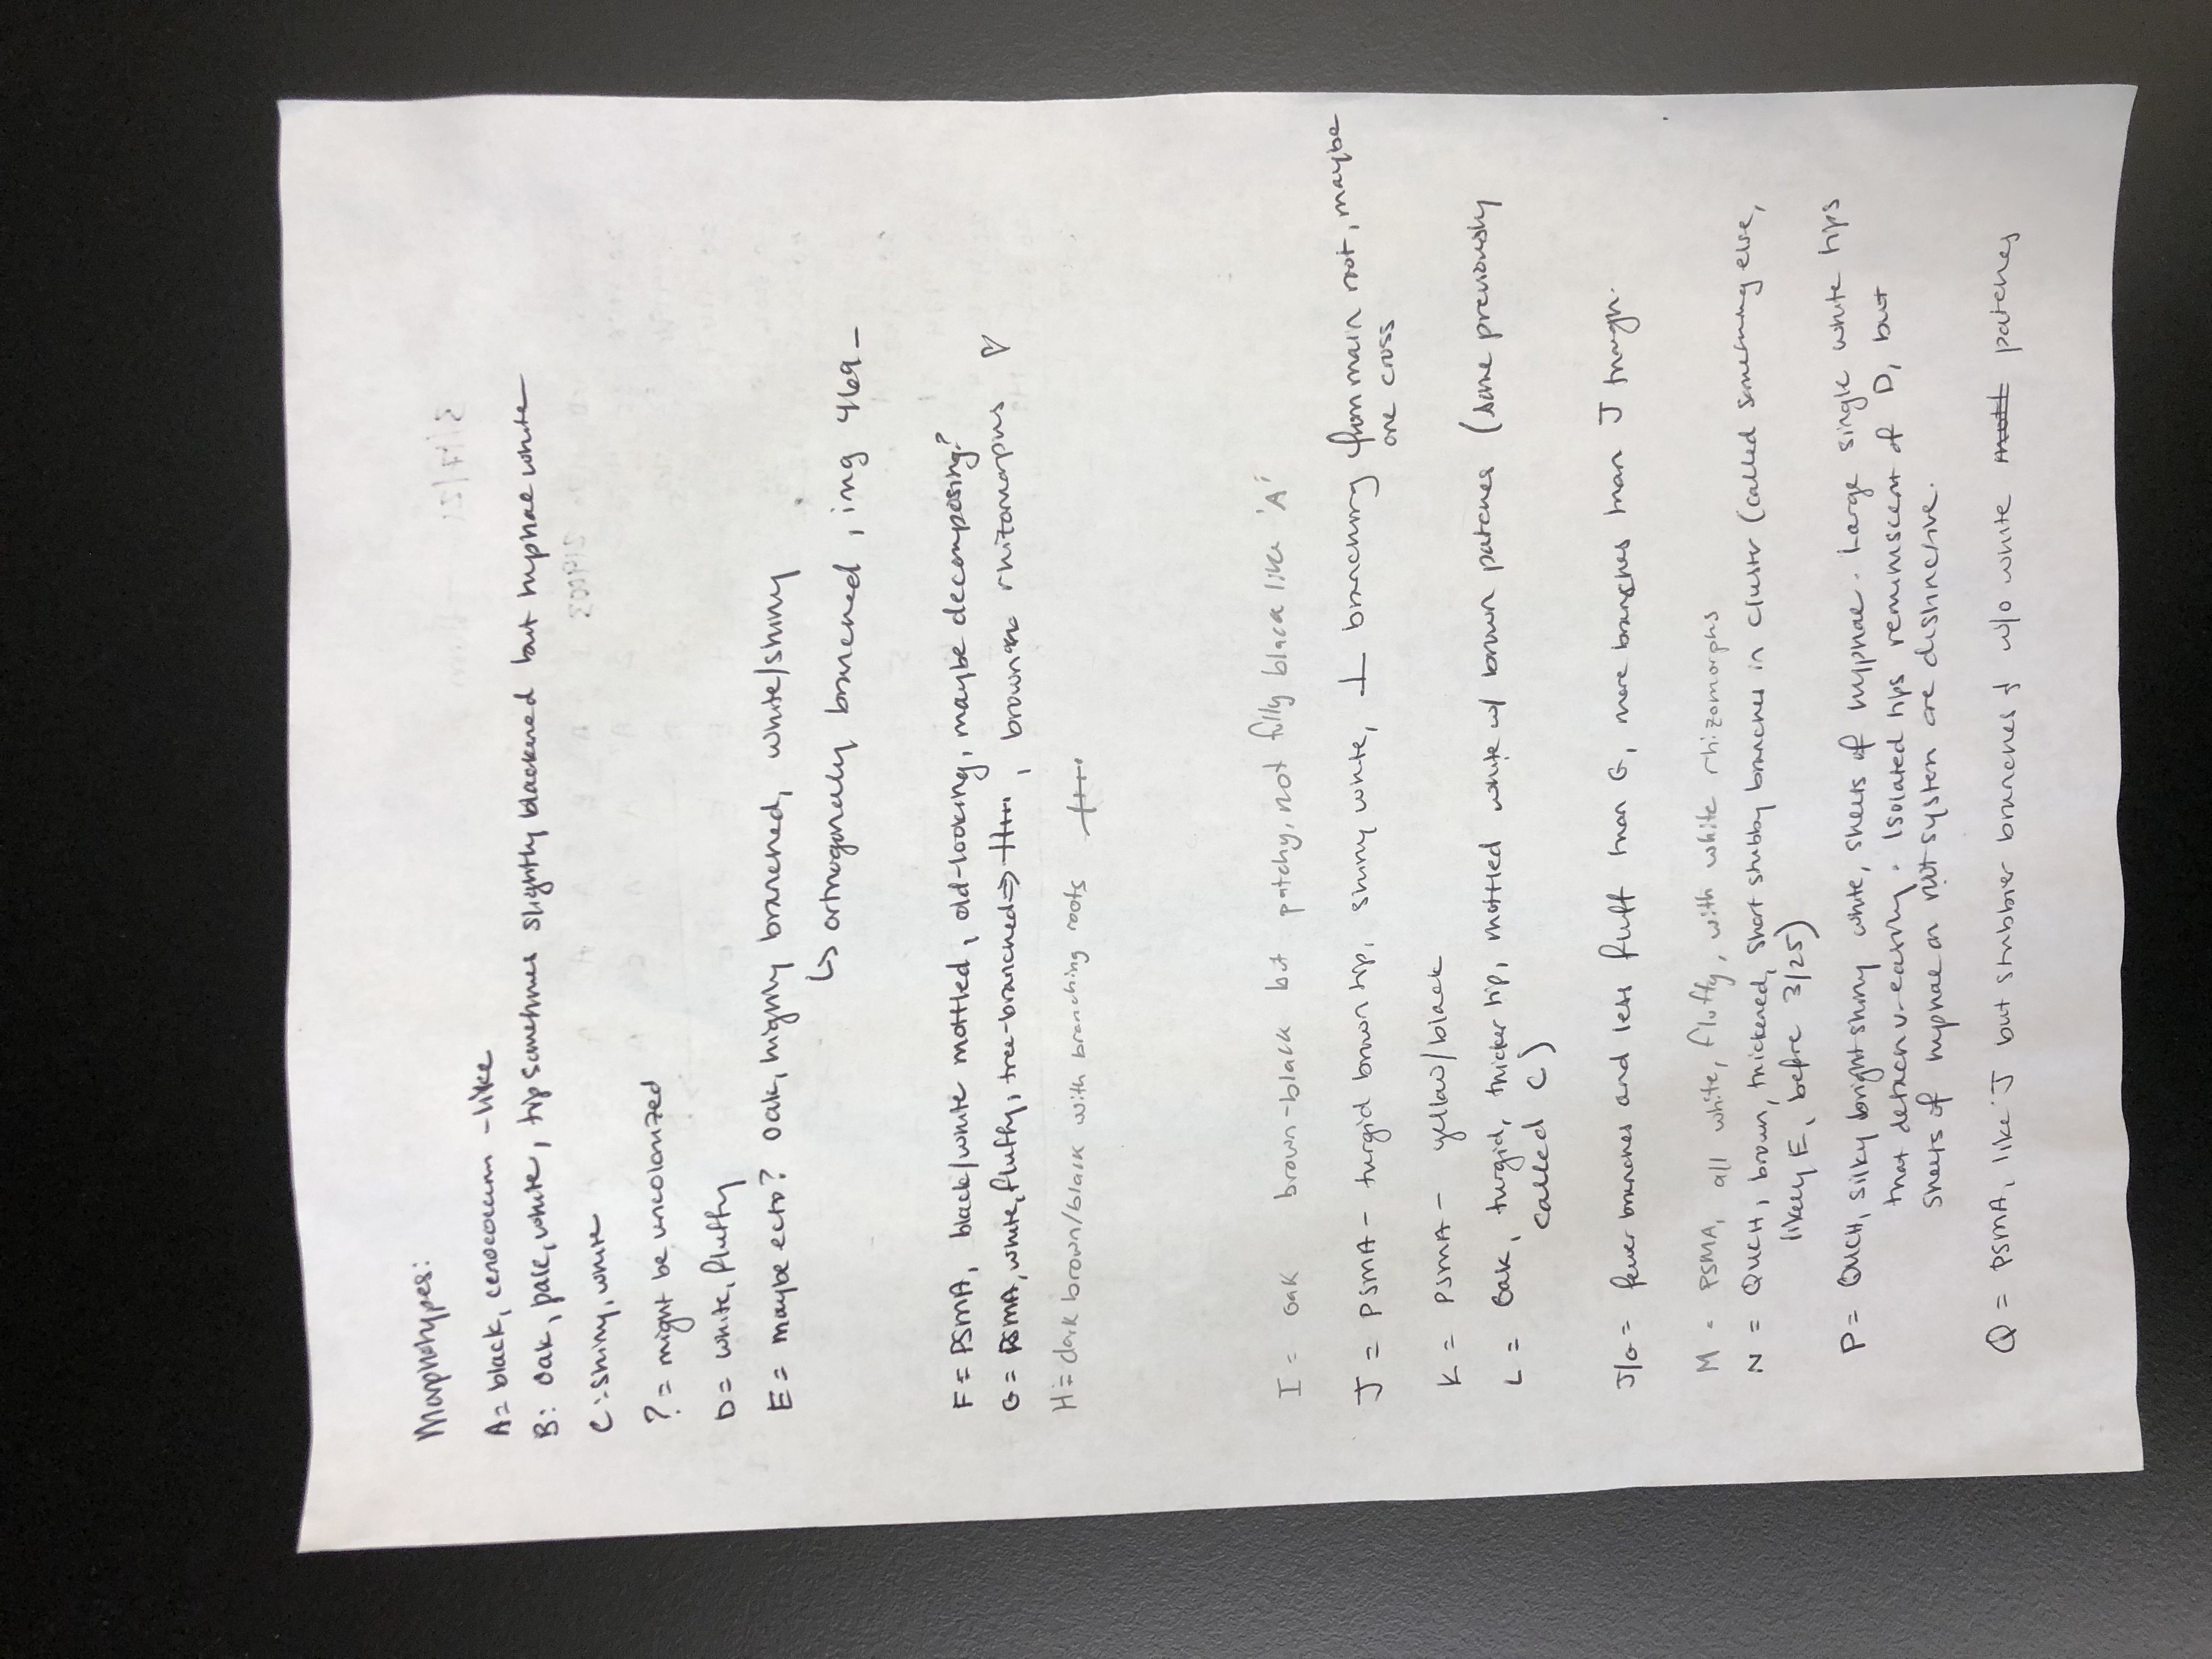 Morphotypes:
A= black, cenococcum -like
B: Oak, pale, white, tip sometimes slightly blackened but hyphae white
C: shiny, white
? = might be uncolonized
D= white, fluffy
E= maybe ecto? Oak, highly branched, white/shiny
↳ orthogonally branched, img 469-
F= PSMA, black/white mottled, old-looking, maybe decomposing?
G= PSMA, white, fluffy, tree-branched⇒ , brown rhizomorphs ♡
H= dark brown/black with branching roots
I = oak brown-black but patchy, not fully black like 'A'
J = PSMA - turgid brown tip, shiny white, ⊥ branching from main root, maybe
one cross
K = PSMA - yellow/black
L = Oak, turgid, thicker tip, mottled white w/ brown patches (some previously
called C)
J/G = fewer branches and less fluff than G, more branches than J though.
M = PSMA, all white, fluffy, with white rhizomorphs
N = QUCH, brown, thickened, short stubby branches in cluster (called something else,
likely E, before 3/25)
P= QUCH, silky bright shiny white, sheets of hyphae. Large single white tips
that detach v. easily. Isolated tips reminiscent of D, but
sheets of hyphae on root system are distinctive.
Q = PSMA, like J but stubbier branches & w/o white mott patches